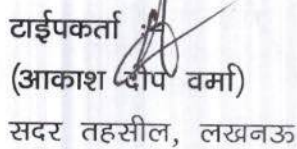 टाईपकर्ता :-
(आकाश दीप वर्मा)
सदर तहसील, लखनऊ